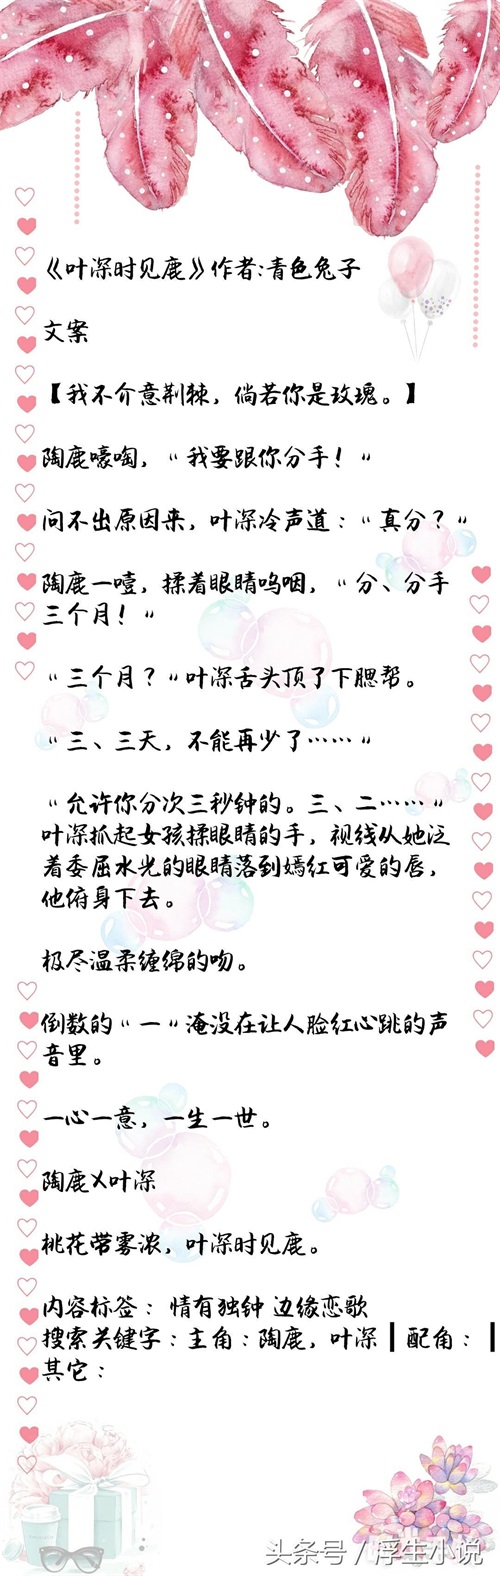 《叶深时见鹿》作者:青色兔子
文案
【我不介意荆棘，倘若你是玫瑰。】
陶鹿嚎啕，“我要跟你分手！“
问不出原因来，叶深冷声道：“真分？“
陶鹿一噎，揉着眼睛呜咽，“分、分手
三个月！“
“三个月？“叶深舌头顶了下腮帮。
“三、三天，不能再少了……“
“允许你分次三秒钟的。三、二……“
叶深抓起女孩揉眼睛的手，视线从她泛
着委屈水光的眼睛落到嫣红可爱的唇，
他俯身下去。
极尽温柔缠绵的吻。
倒数的“一“淹没在让人脸红心跳的声
音里。
一心一意，一生一世。
陶鹿X叶深
桃花带雾浓，叶深时见鹿。
内容标签： 情有独钟 边缘恋歌
搜索关键字：主角：陶鹿，叶深┃配角：┃
其它：
头条号/浮生小说